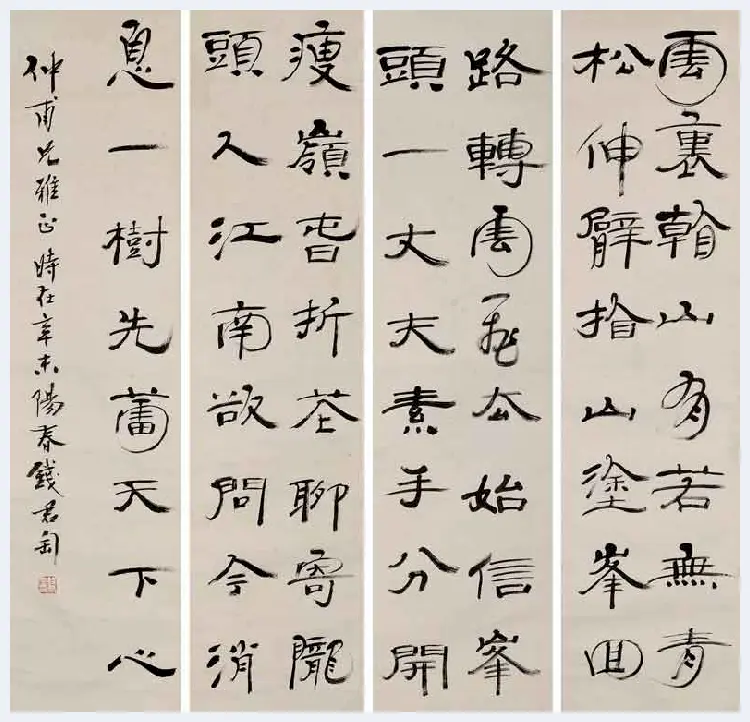 雲裏看山有若無青
松伸臂指山塗峯回
路轉雲飛去始信峯
頭一丈夫素手分開
瘦嶺昔折花聊寄隴
頭人江南欲問今消
息一樹先萅天下心
仲甫兄雅正時在辛未陽春錢君匋